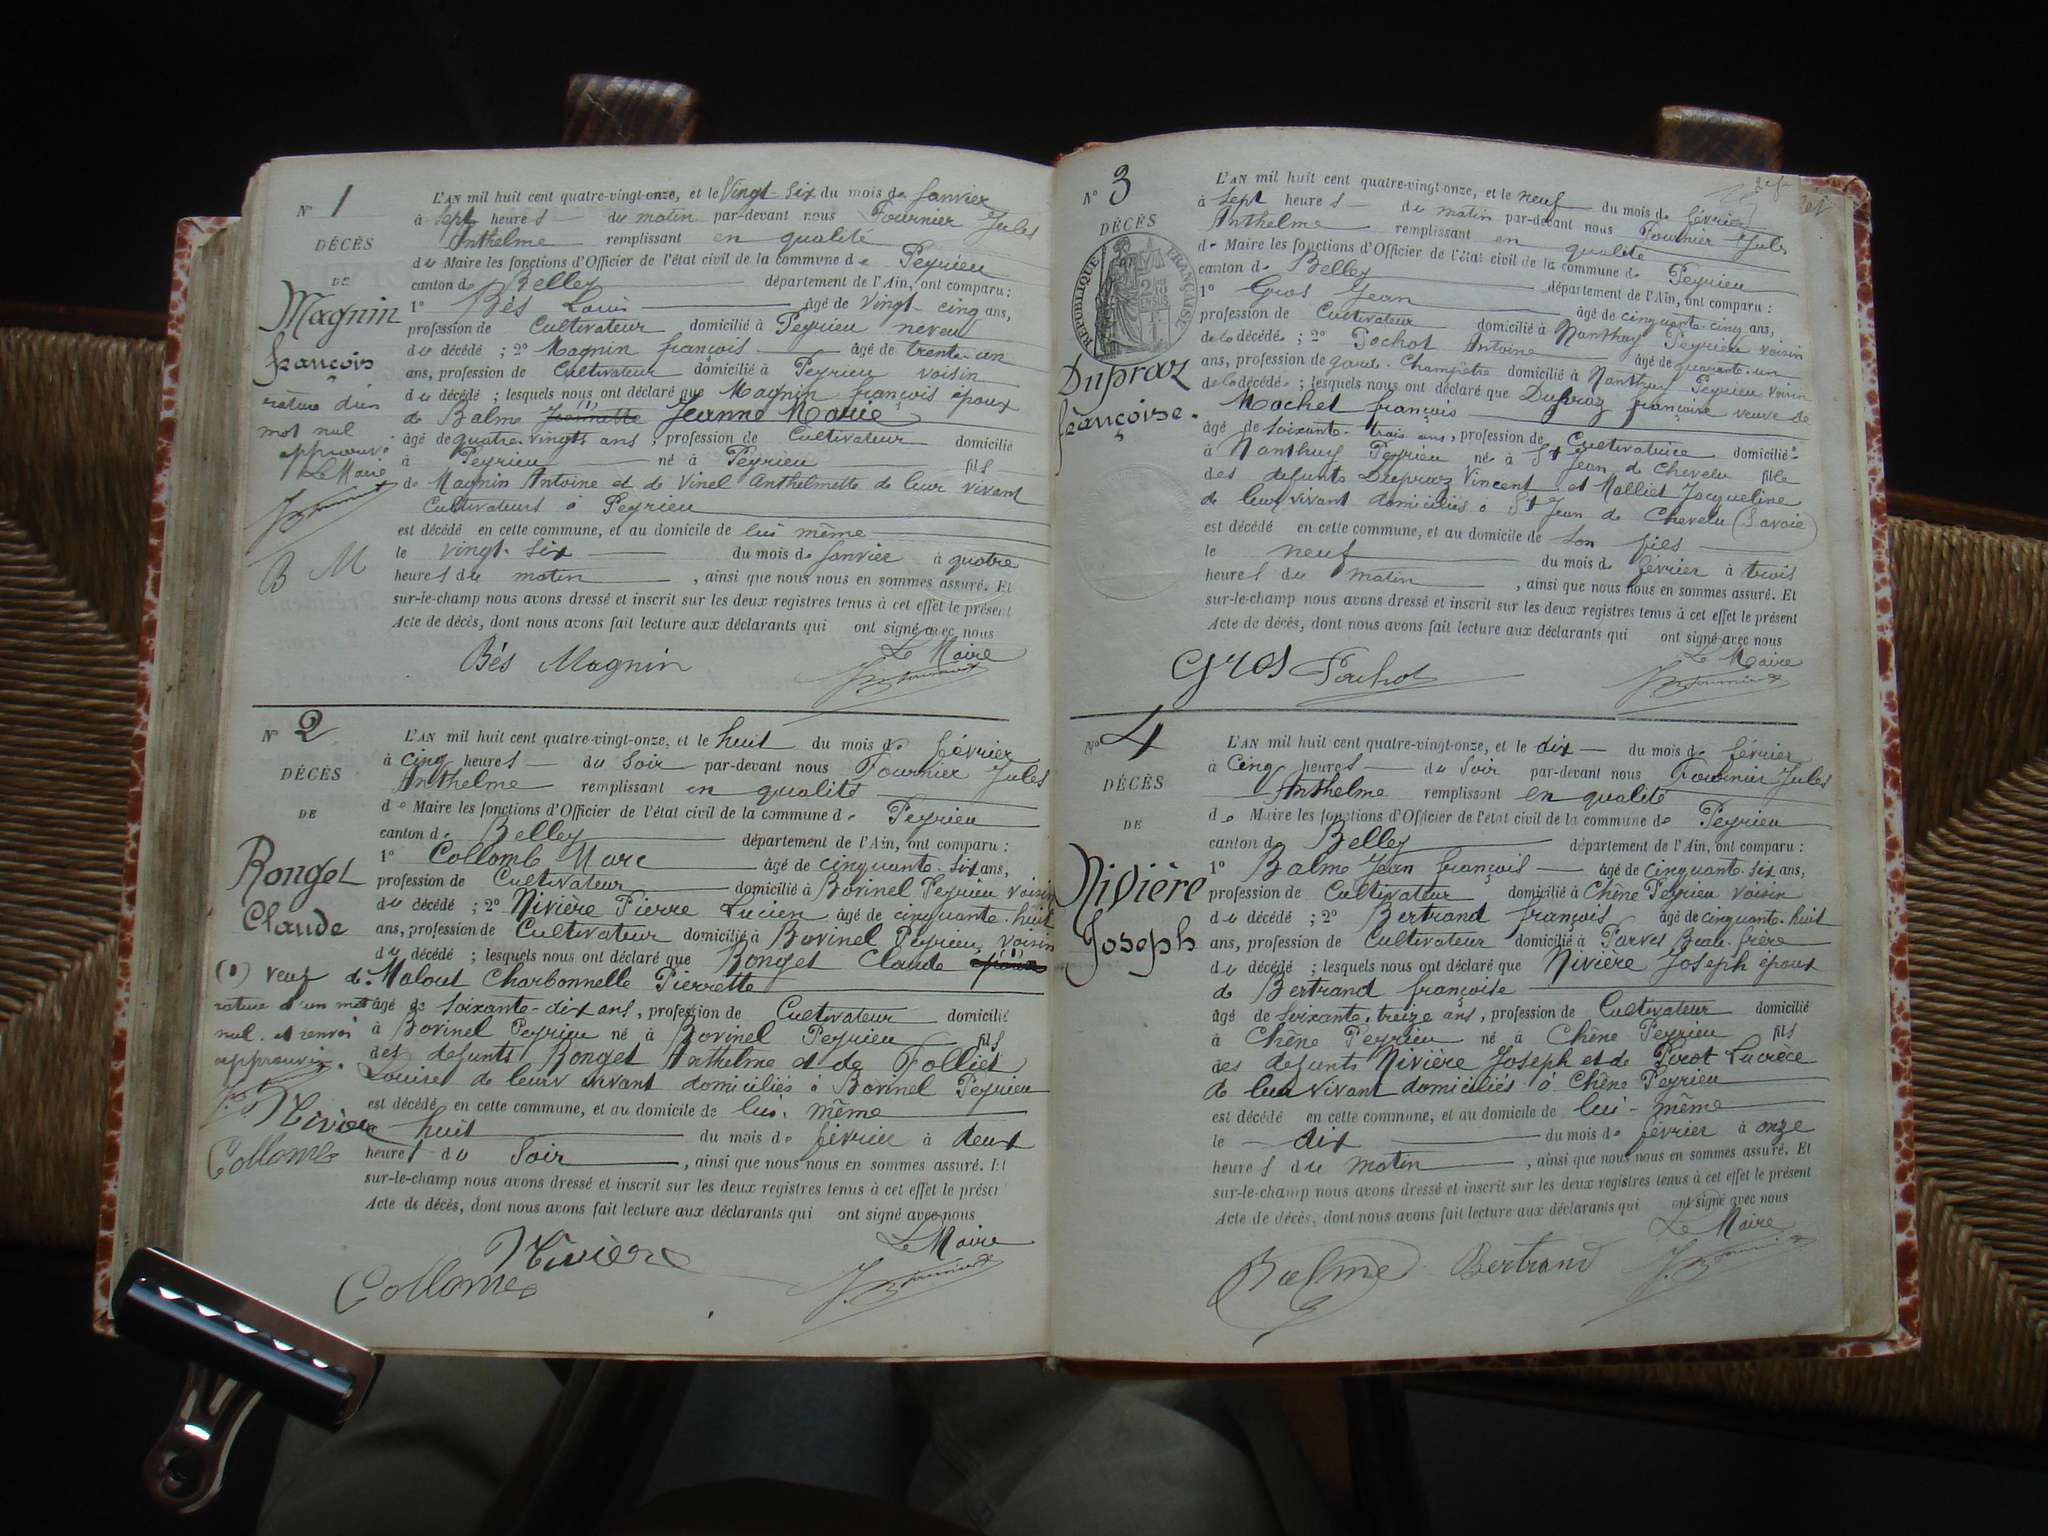 N° 1
DÉCÈS
DE
Magnin
françois
rature d'un
mot nul
approuvé
Le Maire
B M
L'AN mil huit cent quatre-vingt-onze, et le Vingt-six du mois de Janvier
à Sept heures du matin par-devant nous Fournier Jules
Anthelme remplissant en qualité
de Maire les fonctions d'Officier de l'état civil de la commune de Peyrieu
canton de Belley département de l'Ain, ont comparu :
1° Bés Louis âgé de vingt-cinq ans,
profession de Cultivateur domicilié à Peyrieu neveu
du décédé ; 2° Magnin françois âgé de trente-un
ans, profession de Cultivateur domicilié à Peyrieu voisin
du décédé ; lesquels nous ont déclaré que Magnin françois époux
de Balme Jeanne Marie
âgé de quatre-vingts ans, profession de Cultivateur domicilié
à Peyrieu né à Peyrieu fils
de Magnin Antoine et de Vinel Anthelmette de leur vivant
Cultivateurs à Peyrieu
est décédé en cette commune, et au domicile de lui même
le vingt-six du mois de Janvier à quatre
heures du matin, ainsi que nous nous en sommes assuré. Et
sur-le-champ nous avons dressé et inscrit sur les deux registres tenus à cet effet le présent
Acte de décès, dont nous avons fait lecture aux déclarants qui ont signé avec nous
Le Maire
Bés Magnin
N° 2
DÉCÈS
DE
Ronget
Claude
(1) veuf
rature d'un mot
nul et renvoi
approuvés.
Nivière
Collomb
L'AN mil huit cent quatre-vingt-onze, et le huit du mois de février
à Cinq heures du Soir par-devant nous Fournier Jules
Anthelme remplissant en qualité
de Maire les fonctions d'Officier de l'état civil de la commune de Peyrieu
canton de Belley département de l'Ain, ont comparu :
1° Collomb Marc âgé de cinquante-six ans,
profession de Cultivateur domicilié à Bovinel Peyrieu voisin
du décédé ; 2° Nivière Pierre Lucien âgé de cinquante-huit
ans, profession de Cultivateur domicilié à Bovinel Peyrieu voisin
du décédé ; lesquels nous ont déclaré que Ronget Claude époux
de Malout Charbonnelle Pierrette
âgé de soixante-dix ans, profession de Cultivateur domicilié
à Bovinel Peyrieu né à Bovinel Peyrieu fils
des defunts Ronget Anthelme et de Folliet
Louise de leurv vivant domiciliés à Bovinel Peyrieu
est décédé en cette commune, et au domicile de lui-même
huit du mois de février à deux
heures du Soir, ainsi que nous nous en sommes assuré. Et
sur-le-champ nous avons dressé et inscrit sur les deux registres tenus à cet effet le présent
Acte de décès, dont nous avons fait lecture aux déclarants qui ont signé avec nous
Le Maire
Nivière
Collomb
N° 3
DÉCÈS
RÉPUBLIQUE FRANÇAISE
Dupraz
françoise.
L'AN mil huit cent quatre-vingt-onze, et le neuf du mois de février
à Sept heures du matin par-devant nous Fournier Jules
Anthelme remplissant en qualité
de Maire les fonctions d'Officier de l'état civil de la commune de Peyrieu
canton de Belley département de l'Ain, ont comparu :
1° Gros Jean âgé de cinquante-cinq ans,
profession de Cultivateur domicilié à Nanthuy Peyrieu voisin
de la décédée ; 2° Pochot Antoine âgé de quarante-un
ans, profession de garde-Champêtre domicilié à Nanthuy Peyrieu voisin
de la décédée ; lesquels nous ont déclaré que Dupraz françoise veuve de
Mochet françois
âgé de soixante-trois ans, profession de Cultivatrice domiciliée
à Nanthuy Peyrieu né à St Jean de Chevelu fille
des defunts Dupraz Vincent et Malliet Jacqueline
de leur vivant domiciliés à St Jean de Chevelu (Savoie)
est décédé en cette commune, et au domicile de son fils
le neuf du mois de février à trois
heures du matin, ainsi que nous nous en sommes assuré. Et
sur-le-champ nous avons dressé et inscrit sur les deux registres tenus à cet effet le présent
Acte de décès, dont nous avons fait lecture aux déclarants qui ont signé avec nous
Le Maire
Gros Pochot
N° 4
DÉCÈS
DE
Nivière
Joseph
L'AN mil huit cent quatre-vingt-onze, et le dix du mois de février
à Cinq heures du Soir par-devant nous Fournier Jules
Anthelme remplissant en qualité
de Maire les fonctions d'Officier de l'état civil de la commune de Peyrieu
canton de Belley département de l'Ain, ont comparu :
1° Balme Jean françois âgé de cinquante-six ans,
profession de Cultivateur domicilié à Chêne Peyrieu voisin
du décédé ; 2° Bertrand françois âgé de cinquante-huit
ans, profession de Cultivateur domicilié à Parves Beau-frère
du décédé ; lesquels nous ont déclaré que Nivière Joseph époux
de Bertrand françoise
âgé de soixante-treize ans, profession de Cultivateur domicilié
à Chêne Peyrieu né à Chêne Peyrieu fils
des defunts Nivière Joseph et de Pirot Lucrèce
de leur vivant domiciliés à Chêne Peyrieu
est décédé en cette commune, et au domicile de lui-même
le dix du mois de février à onze
heures du matin, ainsi que nous nous en sommes assuré. Et
sur-le-champ nous avons dressé et inscrit sur les deux registres tenus à cet effet le présent
Acte de décès, dont nous avons fait lecture aux déclarants qui ont signé avec nous
Le Maire
Balme Bertrand